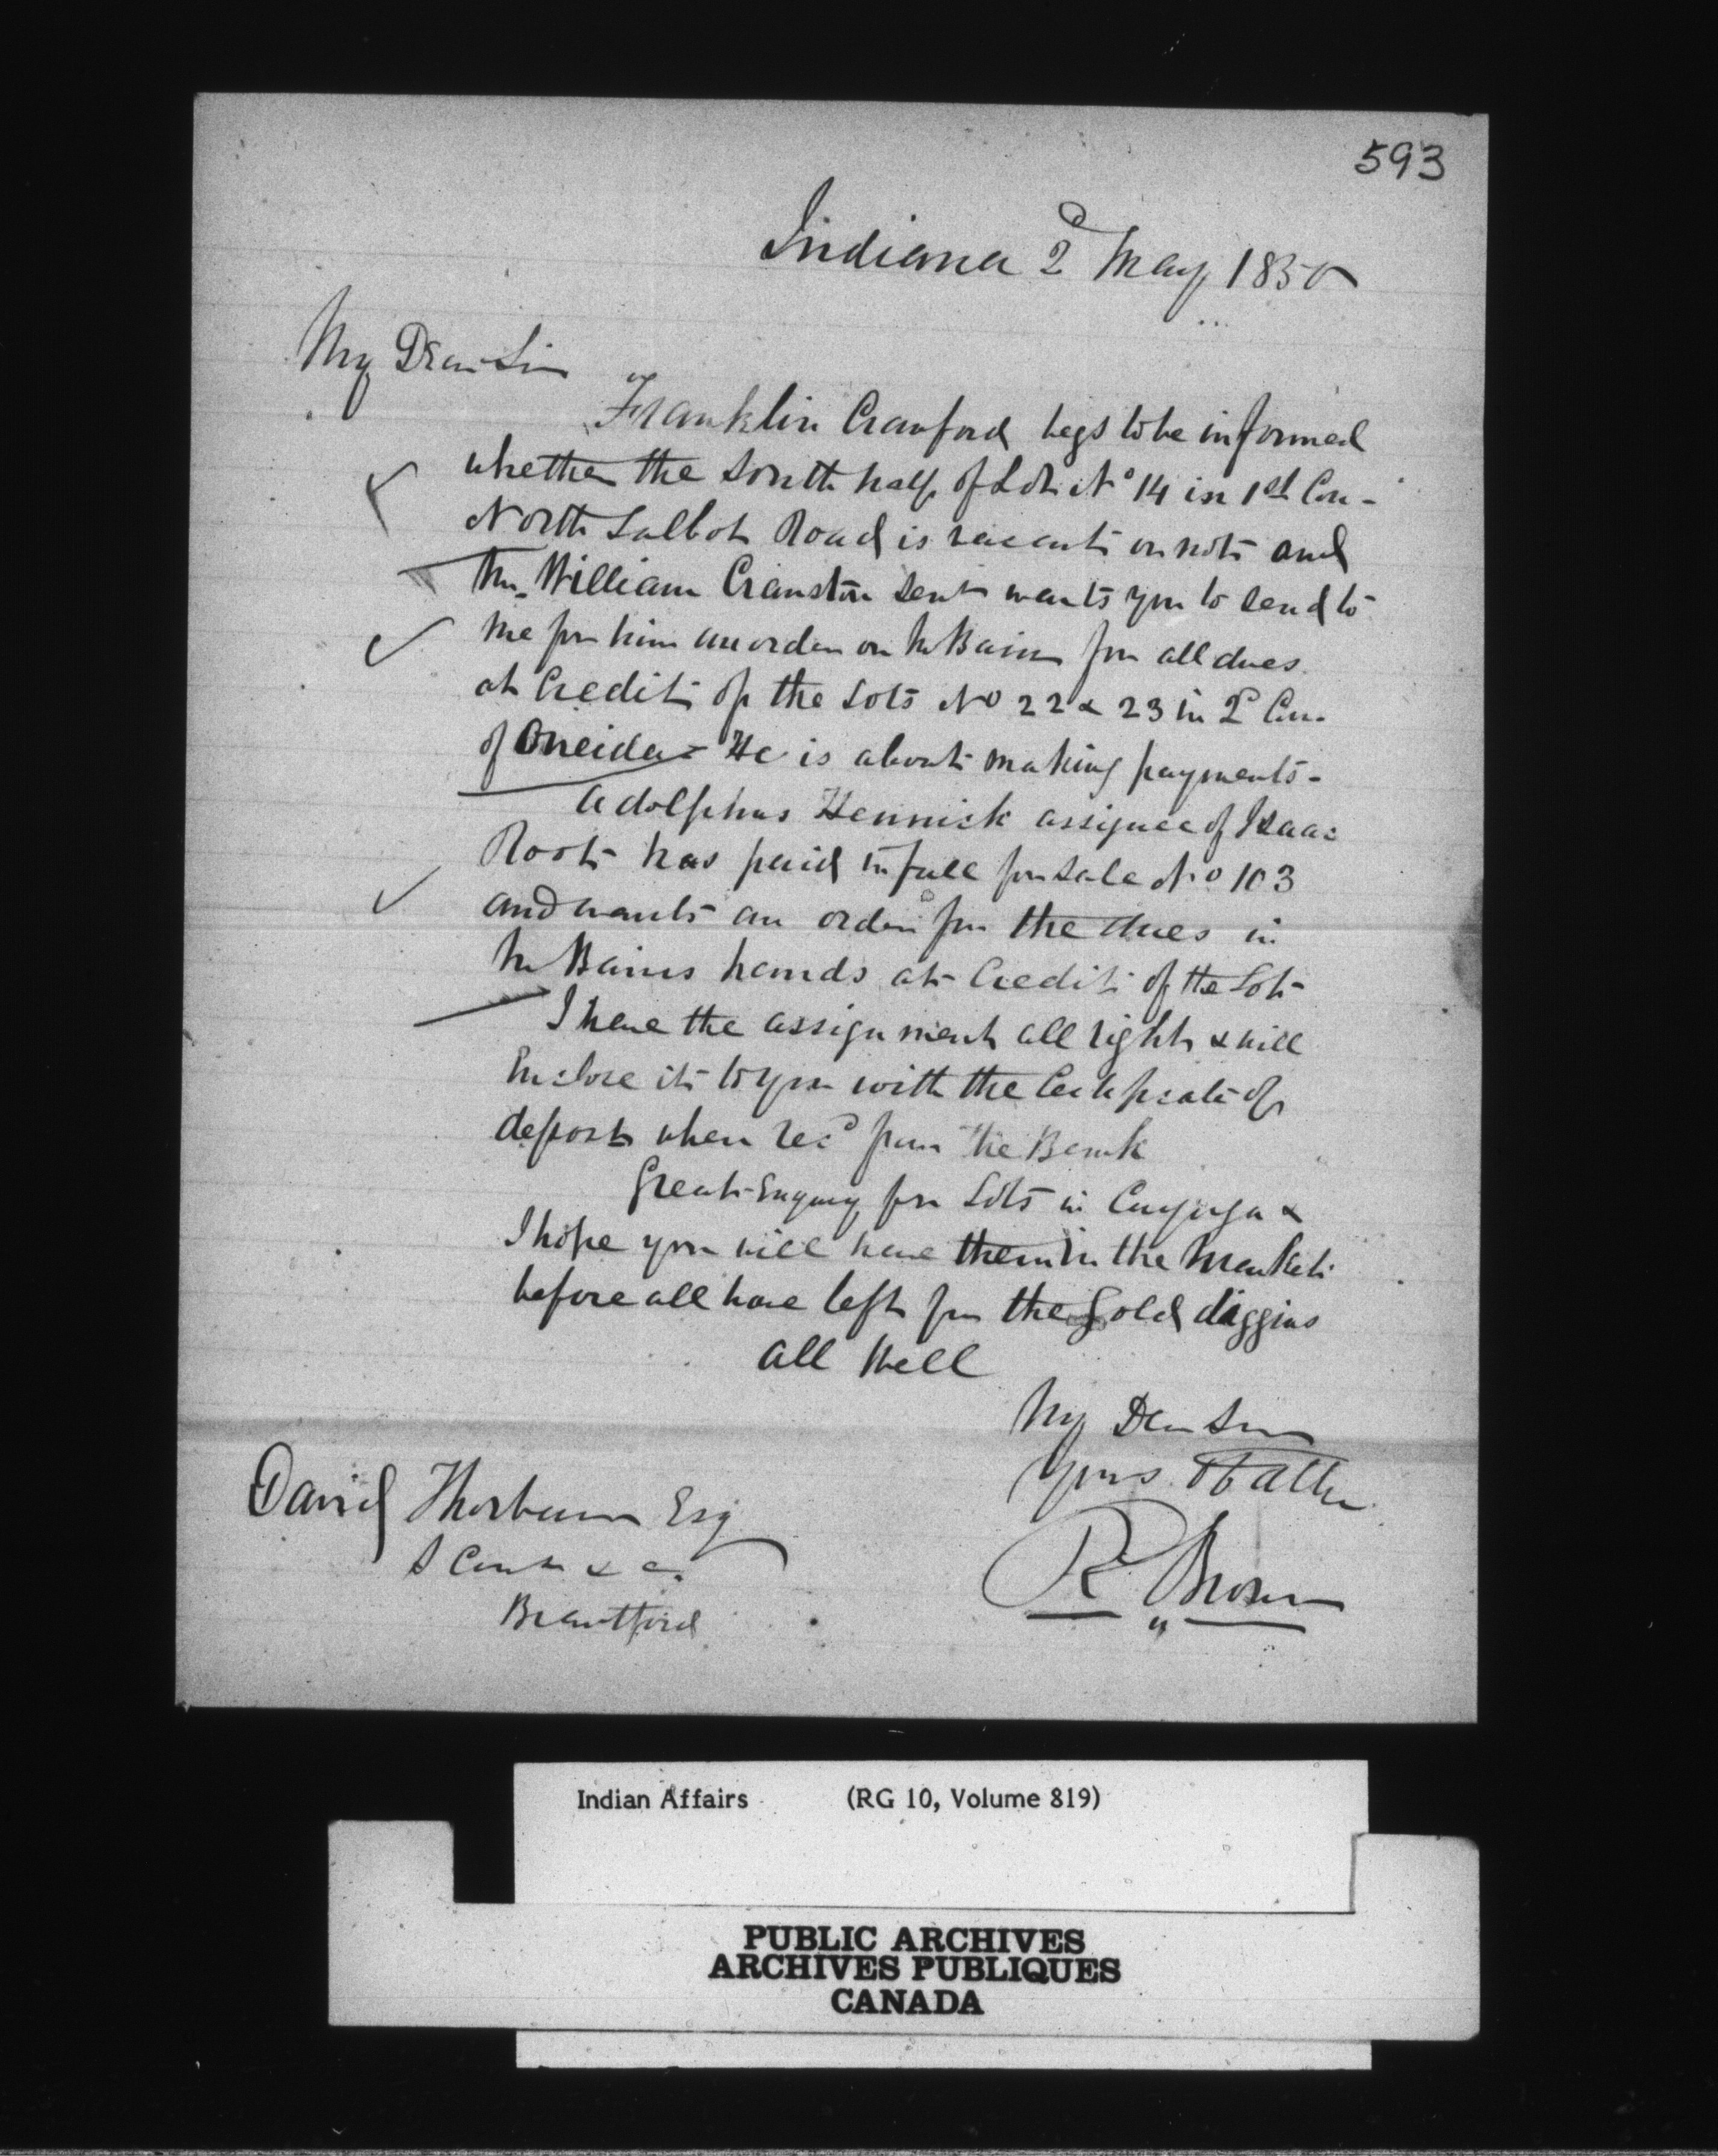 593
Indiana 2d May 1850
My Dear Sir
Franklin Crawford begs to be informed
whether the South half of Lot No 14 in 1st Con-
North Talbot Road is vacant or not and
Mr William Cranston Senr wants you to send to
me for him an order on Mr Bain for all dues
at Credit of the Lots No 22 & 23 in 2d Con.
of Oneida - He is about making payments -
Adolphus Hennick assignee of Isaac
Root has paid in full for Sale No 103
and wants an order for the dues in
Mr Bains hands at Credit of the Lot -
I have the assignment all right & will
Enclose it to you with the Certificate of
deposit when recd from the Bank
Great Enquiry for Lots in Cayuga &
I hope you will have them in the Market
before all have left for the Gold diggins
All Well
My Dear Sir
Yours
R Brown
David Thorburn Esq
&c.
Brantford
Indian Affairs (RG 10, Volume 819)
PUBLIC ARCHIVES
ARCHIVES PUBLIQUES
CANADA